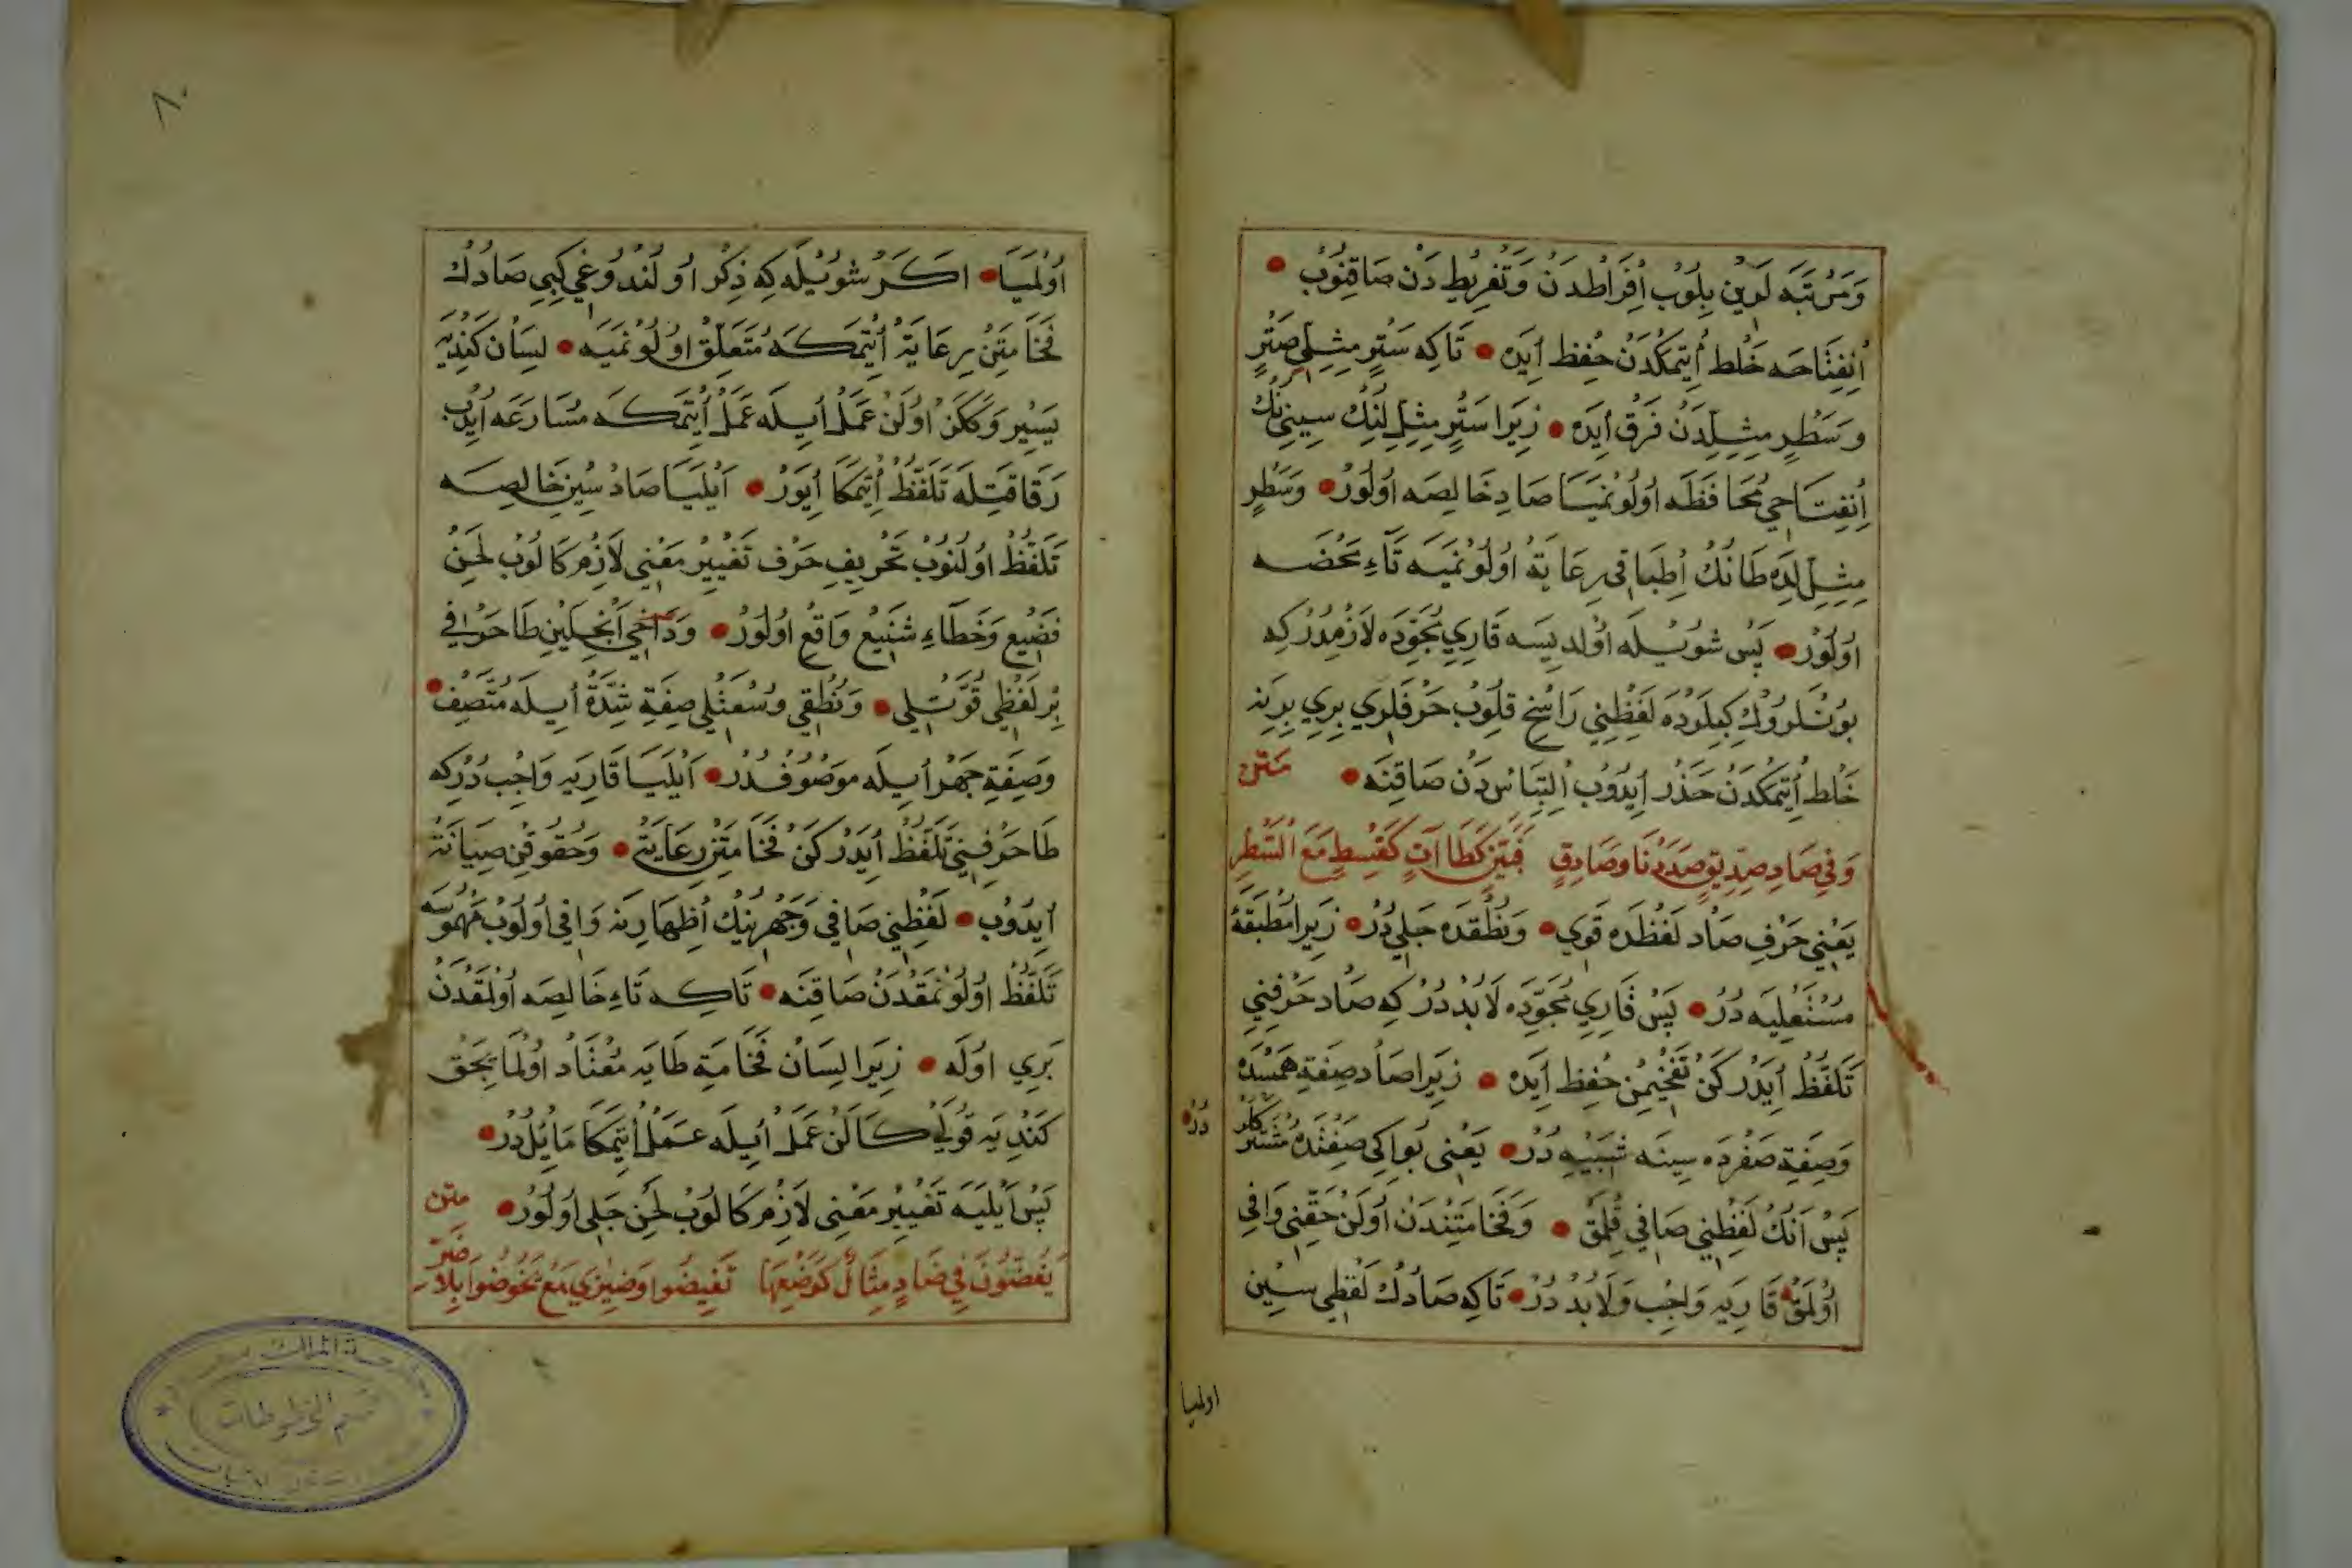 وَمَرْتَبَه لَرِين بِلُوب اِفْرَاطْدَن وَتَفْرِيط دَن صَاقِنُوب
اِنْفِتَاحَه خَلْط اِتْمَكْدَن حِفْظ اَيَدَه تَاكِه سَتْرٍ مِثِلِي صَتْرٍ
وَسَطْرٍ مِثِلِدَن فَرْق اَيَدَه زِيرَا سَتْرٍ مِثِلِنَك سِينِنُك
اِنْفِتَاحِي مُحَافَظَه اُولُونْمَيَا صَادِ خَالِصَه اُولُور وَسَطْرٍ
مِثِلِنْدَه طَانُك اِطْبَاقِي رِعَايَة اُولُونْمَيَه تَاءِ مَحْضَه
اُولُور پَس شُويْلَه اُولِيسَه قَارِيِ مُجَوِّدَه لَازِمْدُر كِه
بُونْلَرُوك كِبِلَرْدَه لَفْظِينِي رَاسِخ قِلُوب حَرْفَلَرِي بِرِي بِرِينَه
خَلْط اِتْمَكْدَن حَذَر اِيدُوب اِلْتِبَاس دَن صَاقِنَه متن
وَفِي صَادِ صِدِّيقٍ صَدَدْنَا وَصَادِقٍ فَبَيِّنْ كَطَا آتٍ كَقِسْطٍ مَعَ الشَّطْرِ
يَعْنِي حَرْفِ صَاد لَفْظْدَه قَوِي وَنُطْقْدَه جَلِي دُر زِيرَا مُطْبَقَة
مُسْتَعْلِيَه دُر پَس قَارِيِ مُجَوِّدَه لَابُدْ دُر كِه صَاد حَرْفِنِي
تَلَفُّظ اِيدَرْكَن تَفْخِيمِن حِفْظ اَيَدَه زِيرَا صَاد صِفَةِ هَمْسْدَه
وَصِفَةِ صَفِرْدَه سِينَه شَبِيه دُر يَعْنِي بُو اِكِي صِفَتْدَه مُشْتَرِكْلَر
دُر
پَس اَنُك لَفْظِينِي صَافِي قِلْمَق وَفَخَامَتِنْدَن اُولَن حَقِّنِي وَافِي
اُولْمَق قَارِيَه وَاجِب وَلَابُد دُر تَاكِه صَادُك لَفْظِي سِين
اولميا
٨٠
اُولْمَيَا اَكَر شُويْلَه كِه ذِكْر اُولُنْدُوغِي كِبِي صَادُك
فَخَامَتِن رِعَايَة اِتْمَكَه مُتَعَلِّق اُولُونْمَيَه لِسَان كَنْدِيَه
يَسِير وَمُمْكِن اُولَن عَمَل اَيلَه عَمَل اِتْمَكَه مُسَارَعَه اِيدُب
رَقَاقَتِلَه تَلَفُّظ اِتْمَكَا اِيوَر اَيْلَيَا صَاد سِينِ خَالِصَه
تَلَفُّظ اُولُنُوب تَحْرِيفِ حَرْف تَغْيِيرِ مَعْنِي لَازِم كَالُوب لَحْنِ
فَضِيع وَخَطَاءِ شَنِيع وَاقِع اُولُور وَدَاخِي اَنْجِلَيِن طَا حَرْفِي
بِر لَفْظِي قُوَّتْلِي وَنُطْقِي وُسْعَتْلِي صِفَةِ شِدَّة اَيلَه مُتَّصِف
وَصِفَةِ جَهْر اَيلَه مَوْصُوفْدُر اَيْلَيَا قَارِيَه وَاجِب دُر كِه
طَا حَرْفِينِي تَلَفُّظ اِيدَرْكَن فَخَامَتِن رِعَايَة وَحُقُوقِن صِيَانَة
اِيدُوب لَفْظِينِي صَافِي وَجَهْرِينُك اِظْهَارِينَه وَافِي اُولُوب مَهْمُوسَه
تَلَفُّظ اُولُونْمَقْدَن صَاقِنَه تَاكِه تَاءِ خَالِصَه اُولْمَقْدَن
بَرِي اُولَه زِيرَا لِسَان فَخَامَةِ طَايَه مُعْتَاد اُولْمَا يِجَق
كَنْدِيَه قُولَي كَالَن عَمَل اَيلَه عَمَل اِتْمَكَا مَايِل دُر
پَس اَيْلَيَه تَغْيِيرِ مَعْنِي لَازِم كَالُوب لَحْنِ جَلِي اُولُور متن
يَغُضُّونَ فِي ضَادٍ مِثَالٌ كَوَضْعِهَا تَفِيضُوا وَضِيزَى مَعْ يَخُوضُوا بِلَا ضَرّ
قسم المخطوطات